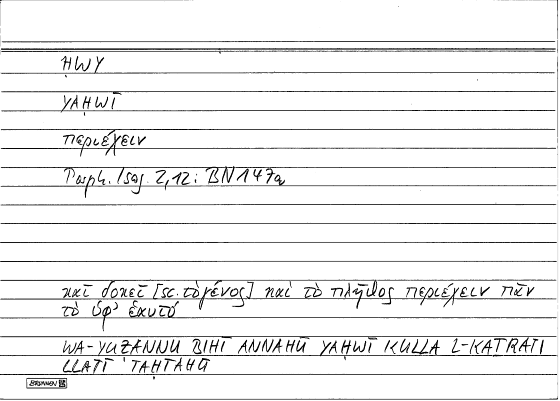 ḤWY
YAḤWĪ
περιέχειν
Porph. Isag. 2,12: BN 147a
καὶ δοκεῖ [sc. τὸ γένος] καὶ τὸ πλῆθος περιέχειν πᾶν
τὸ ὑφ’ ἑαυτό
WA-YUẒANNU BIHĪ ANNAHŪ YAḤWĪ KULLA L-KAṮRATI
LLATĪ TAḤTAHŪ
BRUNNEN